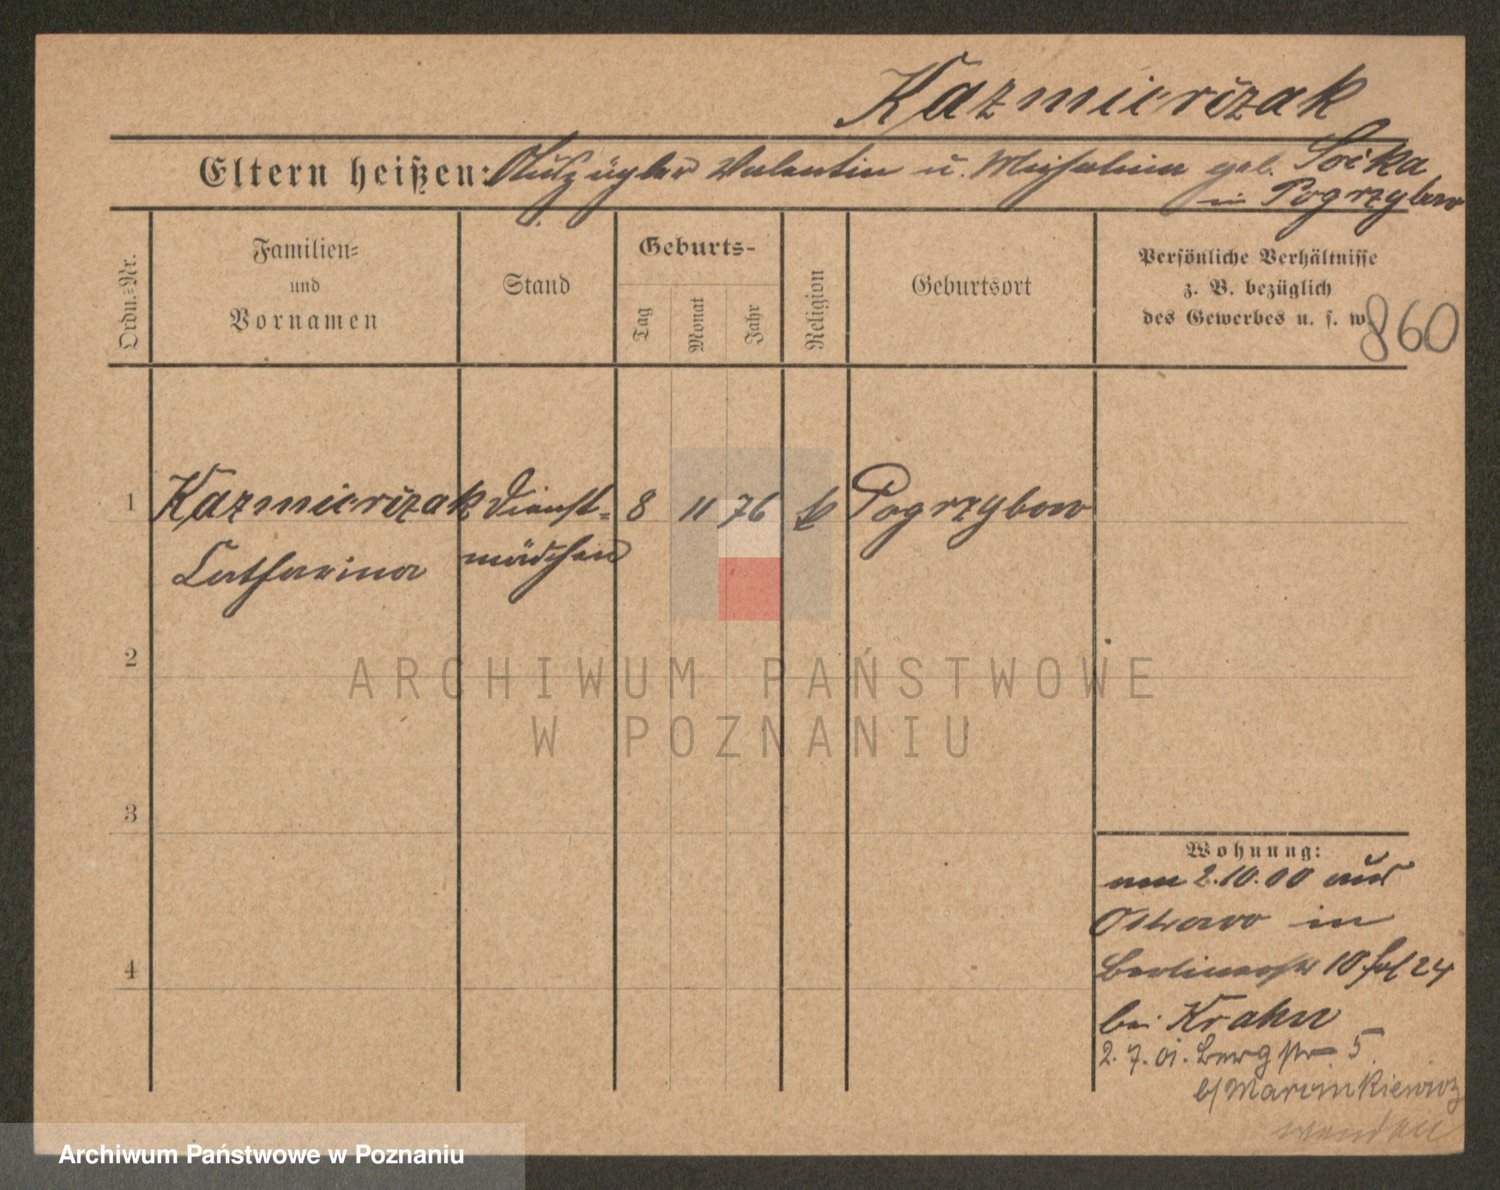 Kazmierczak
Eltern heißen: Auszügler Valentin u. geb. Soika
in Pogrzybow
Ordn.-Nr.
Familien-
und
Vornamen
Stand
Geburts-
Tag
Monat
Jahr
Religion
Geburtsort
Persönliche Verhältnisse
z. B. bezüglich
des Gewerbes u. s. w.
860
1 Kazmierczak Dienst- 8 11 76 k Pogrzybow
Catharina mädchen
2
ARCHIWUM PAŃSTWOWE
W POZNANIU
3
4
Wohnung:
2.10.00 aus
Ostrowo in
Berlinerstr 10 24
bei Krahn
2.7.01. Bergstr 5
b/ Marcinkiewicz
wenden
Archiwum Państwowe w Poznaniu